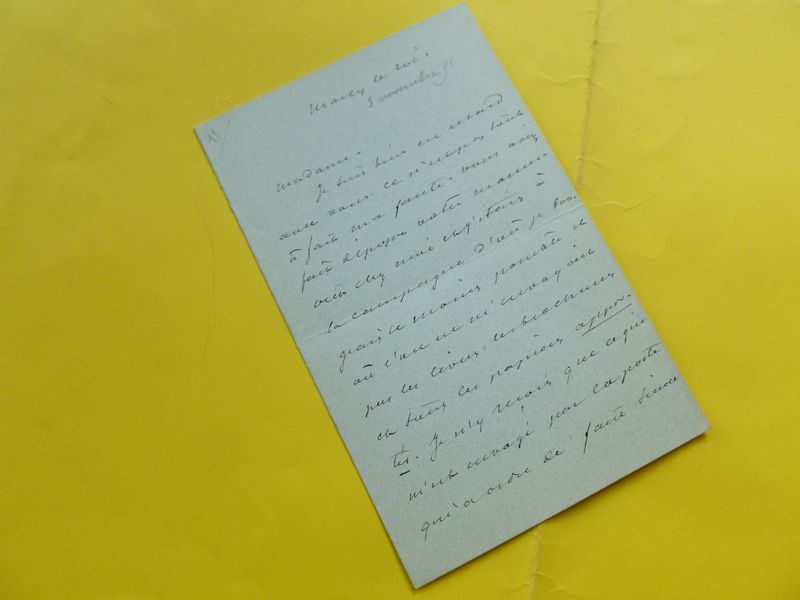 11
Marly le roi.
3 novembre 91
Madame -
Je suis bien en retard
avec vous. ce n'est pas tout
à fait ma faute - vous avez
fait déposer votre manus-
crit chez moi et j'étais à
la campagne d'où je bou-
geais le moins possible et
où l'on ne m'envoyait
pas les livres, les brochures
et tous les papiers appor-
tés. Je n'y reçois que ce qui
m'est envoyé par la poste
qui a ordre de faire suivre